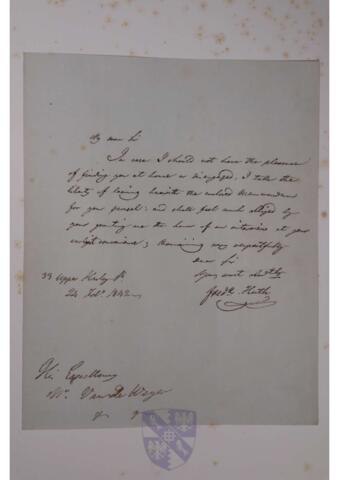 My dear Sir
In case I should not have the pleasure
of finding you at home or disengaged, I take the
liberty of leaving herewith the enclosed Memorandum
for your perusal; and shall feel much obliged by
your granting me the honor of an interview at your
earliest convenience; Remaining very respectfully
Dear Sir
Your most
39 Upper Harley St
24 Feb. 1842
Fredk Huth
His Excellency
Mr. Van De Weyer